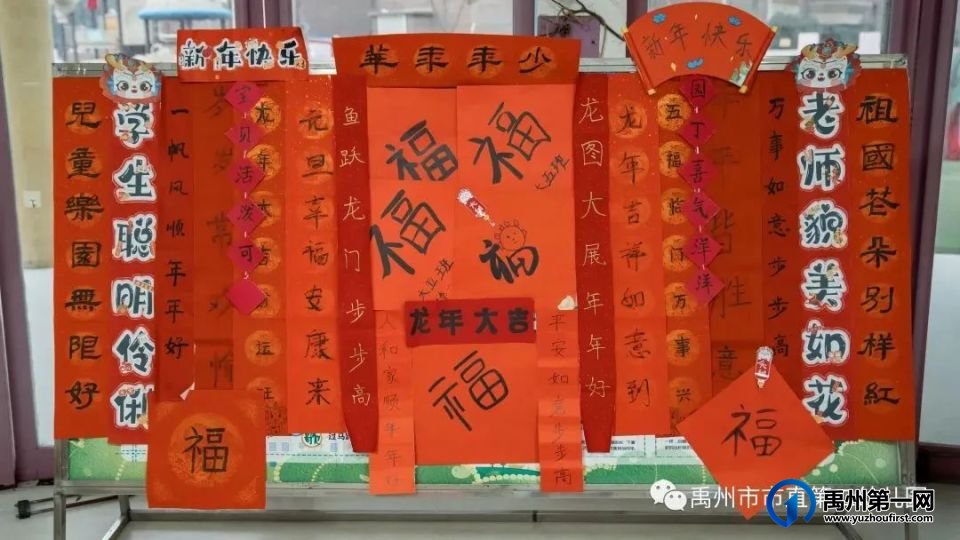 新年快乐
新年快乐
兒童樂園無限好
学生聪明伶俐
一帆风顺年年好
宝贝活泼可
元旦幸福安康来
鱼跃龙门步步高
福
福
大五班
福
福
大五班
龙年大吉
福
人和家顺年年
平安如意步步高
龙图大展年年好
龙年吉祥如意到
五福临门万事兴
园丁喜气洋洋
万事如意步步高
老师貌美如花
祖國花朵别样紅
福
福
禹州市市直第一
禹州第一网
www.yuzhoufirst.com